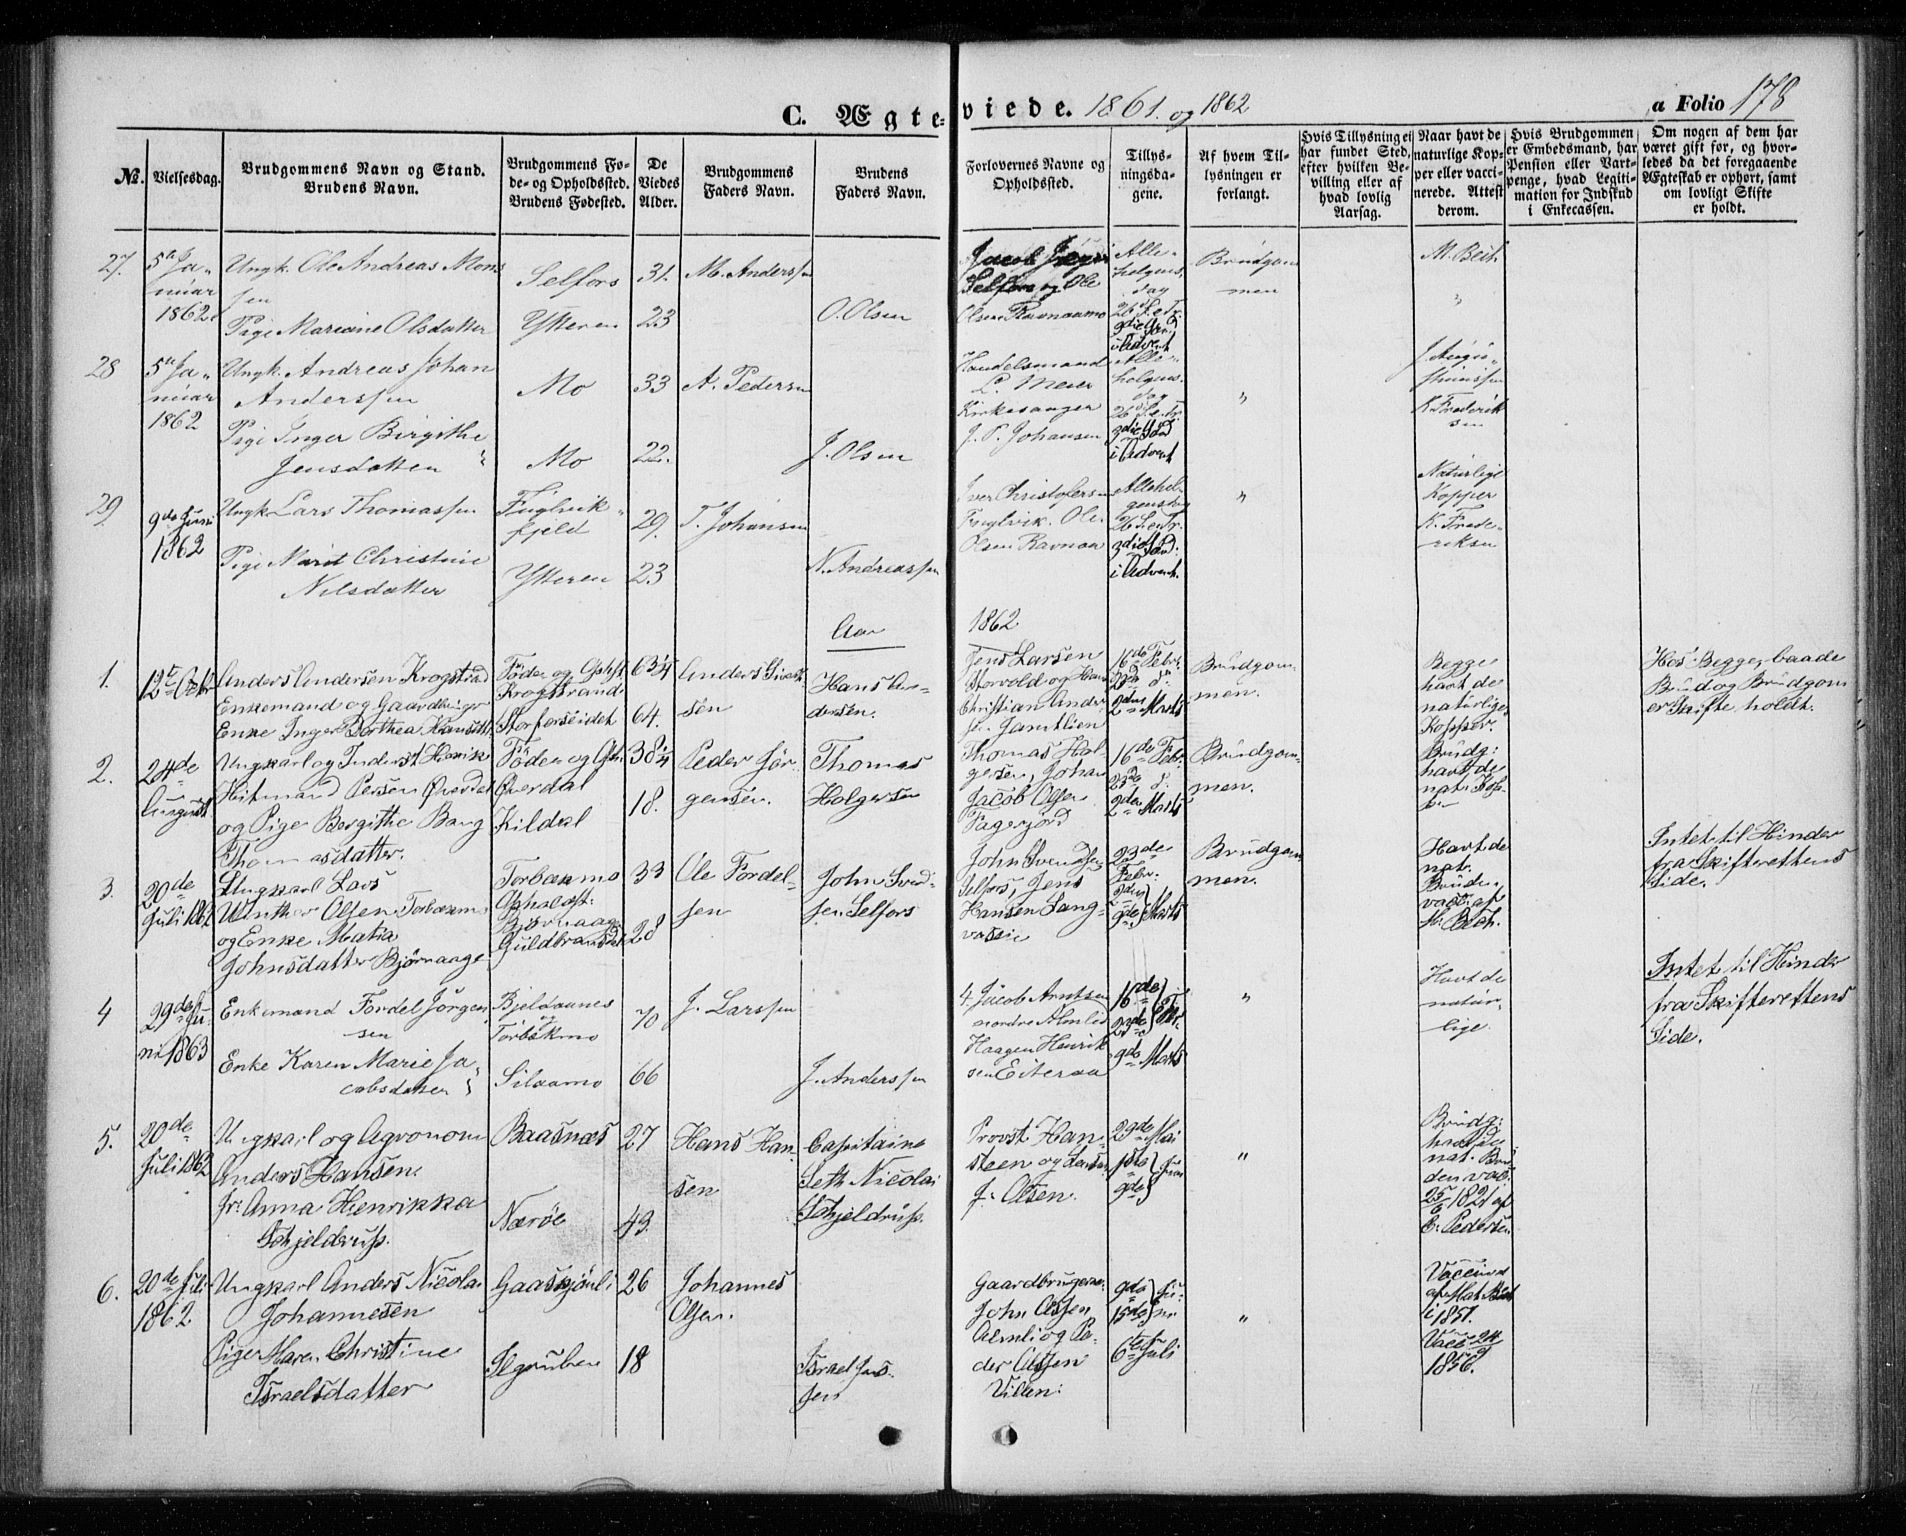 C. Ægteviede. 1861. og 1862
a Folio 178
№.
Vielsesdag.
Brudgommens Navn og Stand.
Brudens Navn.
Brudgommens Fø-
de- og Opholdssted.
Brudens Fødested.
De
Viedes
Alder.
Brudgommens
Faders Navn.
Brudens
Faders Navn.
Forlovernes Navne og
Opholdssted.
Tillys-
ningsda-
gene.
Af hvem Til-
lysningen er
forlangt.
Hvis Tillysning ei
har fundet Sted,
efter hvilken Be-
villing eller af
hvad lovlig
Aarsag.
Naar havt de
naturlige Kop-
per eller vacci-
nerede. Attest
derom.
Hvis Brudgommen
er Embedsmand, har
Pension eller Vart-
penge, hvad Legiti-
mation for Indskud
i Enkecassen.
Om nogen af dem har
været gift før, og hvor-
ledes da det foregaaende
Ægteskab er ophørt, samt
om lovligt Skifte
er holdt.
27.
5te Ja-
nuar
1862
Ungk. Ole Andreas Mons
sen
Pige Mariane Olsdatter
Selfors
Ytteren
31.
23
M. Anderssen
O. Olsen
Selfors og Ole
Olsen Ravnaamo
Alle-
helgens
dag
26d S.e.Tr.
3die Sønd
i Advent
Brudgom
men
M. Bech
"
28
5te Ja-
nuar
1862
Ungk. Andreas Johan
Anderssen
Pige Inger Birgithe
Jensdatter
Mo
Mo
33
22.
A. Pedersen
J. Olsen
Handelsmand
L. Meier
Kirkesanger
J. P. Johansen
Alle-
helgens
dag
26d S.e.Tr.
3die Sønd
i Advent
"
K. Frederik
sen
29
9de Juni
1862
Ungk. Lars Thomassen
Pige Marit Christine
Nilsdatter
Fuglvik-
fjeld
Ytteren
29.
23
T. Johansen
N. Andreassen
Iver Christofersen
Fuglvik. Ole
Olsen Ravnaa
Allehel-
gensdag
26 S.e.Tr.
3die Sønd:
i Advent.
"
Naturlige
Kopper
K. Frede-
riksen
Aar 1862
1.
12te Octbr
Anders Andersen Krogstrad
Enkemand og Gaardbruger
Enke Inger Dorthea Hansdtt.
Føde og Opholst.
Krogstrand
Storforseidet
63¼
64.
Anders
sen
Hans An-
dersen.
Jens Larsen
Storvold og Hans
Christian Ander
sen Jamtlien
16de Febr.
23de d.
2den Marts
Brudgom-
men.
Begge
havt de
naturlige
Kopper.
Hos Begge, baade
Brud og Brudgom
er Skifte holdt.
2.
24de
August
Ungkarl og Inderst Henrik
Hitmand Persen Øverdal
og Pige Bergithe Bang
Thomasdatter.
Føde og Oph.
Øverdal
Kildal
38¼
18.
Peder Jør-
gensen.
Thomas
Holgersen
Thomas Hol-
gersen, Johan
Jacob Olsen
Fagerjord
16de Febr.
23de d.
2den Marts
Brudgom-
men.
Brudg:
havt de
nat. Kop-
3.
20de
Juli 1862
Ungkarl Lars
Winther Olsen Torbækmo
og Enke Matia
Johnsdatter Bjørnaage
Torbækmo
Opholdst:
Bjørnaage
Guldbrandsdal
33
28
Ole Fordel-
sen
John Svend-
sen Selfors
John Svendsen
Selfors, Jens
Hansen Lang-
23de
Febr:
2den
9de } Marts
Brudgom
men.
Havt de
nat.
Bruden
vacc. af
M. Bech.
Intet til Hinder
fra Skifterettens
Side.
4
29de Ju-
ni 1863
Enkemand Fordel Jørgen
sen
Enke Karen Marie Ja-
cobsdatter
Bjeldaanes
og
Torbekmo
Silaamo
70
66
J. Larssen
J. Anderssen
4. Jacob Arntsen
nordre Almlid
Haagen Henrik
sen Eiteraa
16de
23de } Febr.
9de Marts
"
Havt de
natur-
lige.
Intet til Hinder
fra Skifterettens
Side.
5.
20de
Juli 1862
Ungkarl og Agronom
Anders Hansen.
Jr. Anna Henrikka
Schjeldrup.
Baasnæs
Nærøe
27
43.
Hans Han-
sen
Capitaine
Seth Nicolai
Schjeldrup.
Provst Han-
steen og
J. Olsen.
29de Mai
1ste
9de } Juni
"
Brudg:
havt de
nat. Bru-
den vac.
25/6 1821 af
C. Pedersen
6.
20de Juli
1862
Ungkarl Anders Nicolai
Johannesen
Pige Maren Christine
Israelsdatter
Ilgruben
26
18
Johannes
Olsen.
Israel Jens-
sen
Gaardbrugerne
John Olsen
Almli og Pe-
der Olsen
Villen:
9de
15de } Ju-
ni
6te Juli
"
Vaccined
i 1851.
1856.